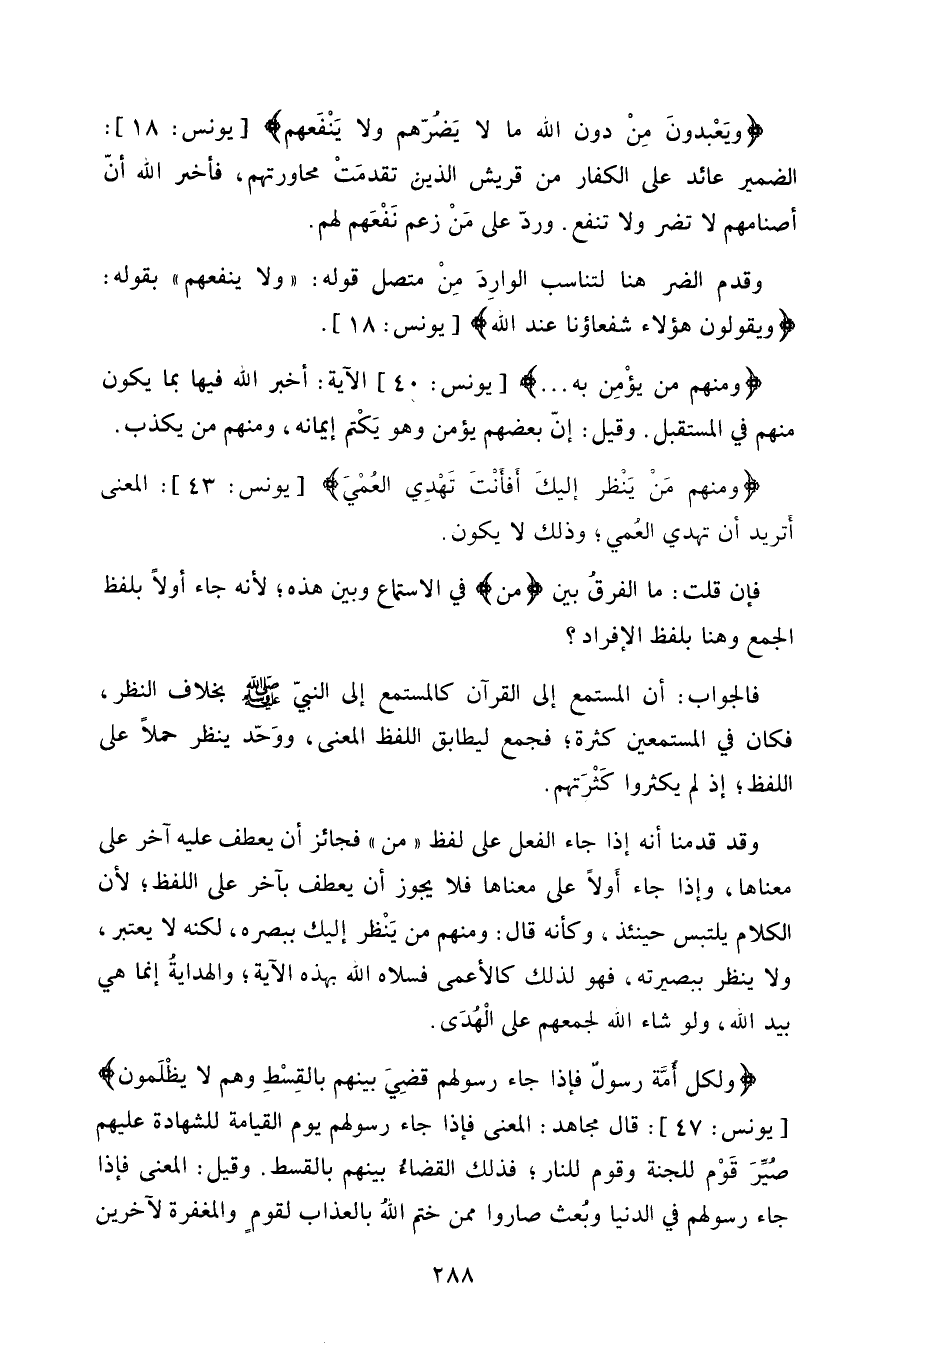 ﴿ويَعْبدونَ مِنْ دون الله ما لا يَضُرّهم ولا يَنْفَعهم﴾ [يونس: ١٨]:
الضمير عائد على الكفار من قريش الذين تقدمَتْ محاورتهم، فأخبر الله أنّ
أصنامهم لا تضر ولا تنفع. وردّ على مَنْ زعم نَفْعَهم لهم.
وقدم الضر هنا لتناسب الوارِدَ مِنْ متصل قوله: «ولا ينفعهم» بقوله:
﴿ويقولون هؤلاء شفعاؤنا عند الله﴾ [يونس: ١٨].
﴿ومنهم من يؤْمِن به...﴾ [يونس: ٤٠] الآية: أخبر الله فيها بما يكون
منهم في المستقبل. وقيل: إنّ بعضهم يؤمن وهو يَكْتم إيمانه، ومنهم من يكذب.
﴿ومنهم مَنْ يَنْظر إليكَ أفأنْتَ تَهْدِي العُمْيَ﴾ [يونس: ٤٣]: المعنى
أَتريد أن تهدي العُمي؛ وذلك لا يكون.
فإن قلت: ما الفرقُ بين ﴿من﴾ في الاستماع وبين هذه؛ لأنه جاء أولاً بلفظ
الجمع وهنا بلفظ الإفراد؟
فالجواب: أن المستمع إلى القرآن كالمستمع إلى النبيّ ﷺ بخلاف النظر،
فكان في المستمعين كثرة؛ فجمع ليطابق اللفظ المعنى، ووَحّد ينظر حملاً على
اللفظ؛ إذ لم يكثروا كَثْرَتهم.
وقد قدمنا أنه إذا جاء الفعل على لفظ «من» فجائز أن يعطف عليه آخر على
معناها، وإذا جاء أَولاً على معناها فلا يجوز أن يعطف بآخر على اللفظ؛ لأن
الكلام يلتبس حينئذ، وكأنه قال: ومنهم من يَنْظر إليك ببصره، لكنه لا يعتبر،
ولا ينظر ببصيرته، فهو لذلك كالأعمى فسلاه الله بهذه الآية؛ والهدايةُ إنما هي
بيد الله، ولو شاء الله لجمعهم على الْهُدَى.
﴿ولكل أُمَّة رسولٌ فإذا جاء رسولهم قضِيَ بينهم بالقِسْطِ وهم لا يظْلَمون﴾
[يونس: ٤٧]: قال مجاهد: المعنى فإذا جاء رسولهم يوم القيامة للشهادة عليهم
صُيِّرَ قَوْم للجنة وقوم للنار؛ فذلك القضاءُ بينهم بالقسط. وقيل: المعنى فإذا
جاء رسولهم في الدنيا وبُعث صاروا ممن ختم اللهُ بالعذاب لقومٍ والمغفرة لآخرين
٢٨٨